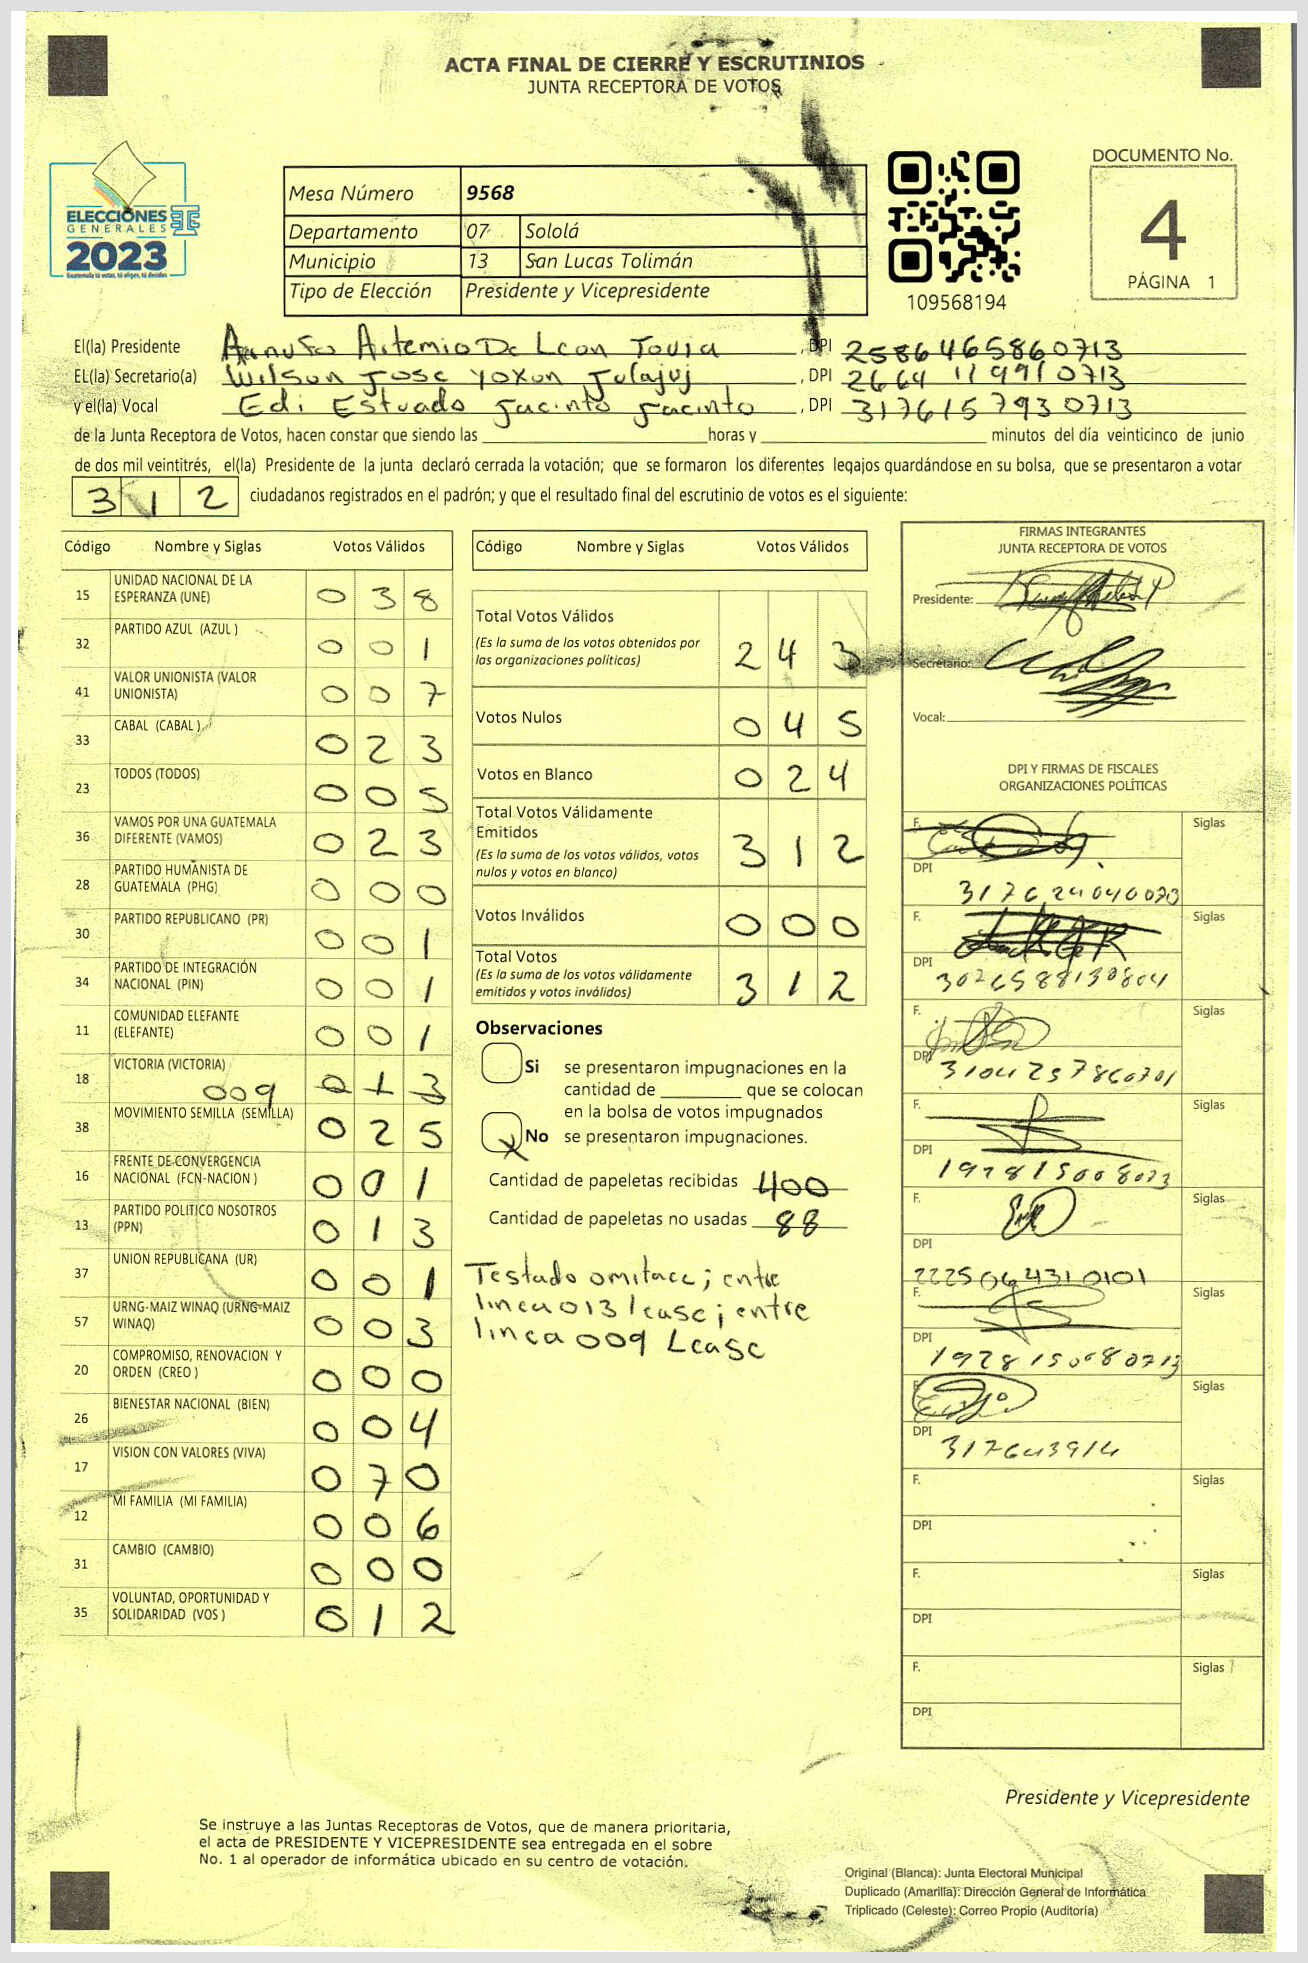 ACTA FINAL DE CIERRE Y ESCRUTINIOS
JUNTA RECEPTORA DE VOTOS
ELECCIONES
GENERALES
2023
Guatemala tú votas, tú eliges, tú decides
Mesa Número 9568
Departamento 07 Sololá
Municipio 13 San Lucas Tolimán
Tipo de Elección Presidente y Vicepresidente
109568194
DOCUMENTO No.
4
PÁGINA 1
El(la) Presidente Artemio De Leon , DPI 2586465860713
EL(la) Secretario(a) Wilson Jose Yoxon Julajuj , DPI 2664 119910713
y el(la) Vocal Edi Estuado Jacinto Jacinto , DPI 3176157930713
de la Junta Receptora de Votos, hacen constar que siendo las horas y minutos del día veinticinco de junio
de dos mil veintitrés, el(la) Presidente de la junta declaró cerrada la votación; que se formaron los diferentes legajos guardándose en su bolsa, que se presentaron a votar
312 ciudadanos registrados en el padrón; y que el resultado final del escrutinio de votos es el siguiente:
Código Nombre y Siglas Votos Válidos
15 UNIDAD NACIONAL DE LA ESPERANZA (UNE) 038
32 PARTIDO AZUL (AZUL ) 001
41 VALOR UNIONISTA (VALOR UNIONISTA) 007
33 CABAL (CABAL ) 023
23 TODOS (TODOS) 005
36 VAMOS POR UNA GUATEMALA DIFERENTE (VAMOS) 023
28 PARTIDO HUMANISTA DE GUATEMALA (PHG) 000
30 PARTIDO REPUBLICANO (PR) 001
34 PARTIDO DE INTEGRACIÓN NACIONAL (PIN) 001
11 COMUNIDAD ELEFANTE (ELEFANTE) 001
18 VICTORIA (VICTORIA) 009 013
38 MOVIMIENTO SEMILLA (SEMILLA) 025
16 FRENTE DE CONVERGENCIA NACIONAL (FCN-NACION ) 001
13 PARTIDO POLITICO NOSOTROS (PPN) 013
37 UNION REPUBLICANA (UR) 001
57 URNG-MAIZ WINAQ (URNG-MAIZ WINAQ) 003
20 COMPROMISO, RENOVACION Y ORDEN (CREO ) 000
26 BIENESTAR NACIONAL (BIEN) 004
17 VISION CON VALORES (VIVA) 070
12 MI FAMILIA (MI FAMILIA) 006
31 CAMBIO (CAMBIO) 000
35 VOLUNTAD, OPORTUNIDAD Y SOLIDARIDAD (VOS ) 012
Código Nombre y Siglas Votos Válidos
Total Votos Válidos 243
(Es la suma de los votos obtenidos por
las organizaciones políticas)
Votos Nulos 045
Votos en Blanco 024
Total Votos Válidamente
Emitidos 312
(Es la suma de los votos válidos, votos
nulos y votos en blanco)
Votos Inválidos 000
Total Votos 312
(Es la suma de los votos válidamente
emitidos y votos inválidos)
Observaciones
Si se presentaron impugnaciones en la
cantidad de que se colocan
en la bolsa de votos impugnados
X No se presentaron impugnaciones.
Cantidad de papeletas recibidas 400
Cantidad de papeletas no usadas 88
Testado omitace; entre
linea 013 lease; entre
linea 009 Lease
FIRMAS INTEGRANTES
JUNTA RECEPTORA DE VOTOS
Presidente:
Secretario:
Vocal:
DPI Y FIRMAS DE FISCALES
ORGANIZACIONES POLÍTICAS
F. Siglas
DPI
F. Siglas
DPI
F. Siglas
DPI
F. Siglas
DPI
F. Siglas
DPI
2225064310101
F. Siglas
DPI
F. Siglas
DPI
317643914
F. Siglas
DPI
F. Siglas
DPI
F. Siglas
DPI
Presidente y Vicepresidente
Se instruye a las Juntas Receptoras de Votos, que de manera prioritaria,
el acta de PRESIDENTE Y VICEPRESIDENTE sea entregada en el sobre
No. 1 al operador de informática ubicado en su centro de votación.
Original (Blanca): Junta Electoral Municipal
Duplicado (Amarilla): Dirección General de Informática
Triplicado (Celeste): Correo Propio (Auditoría)